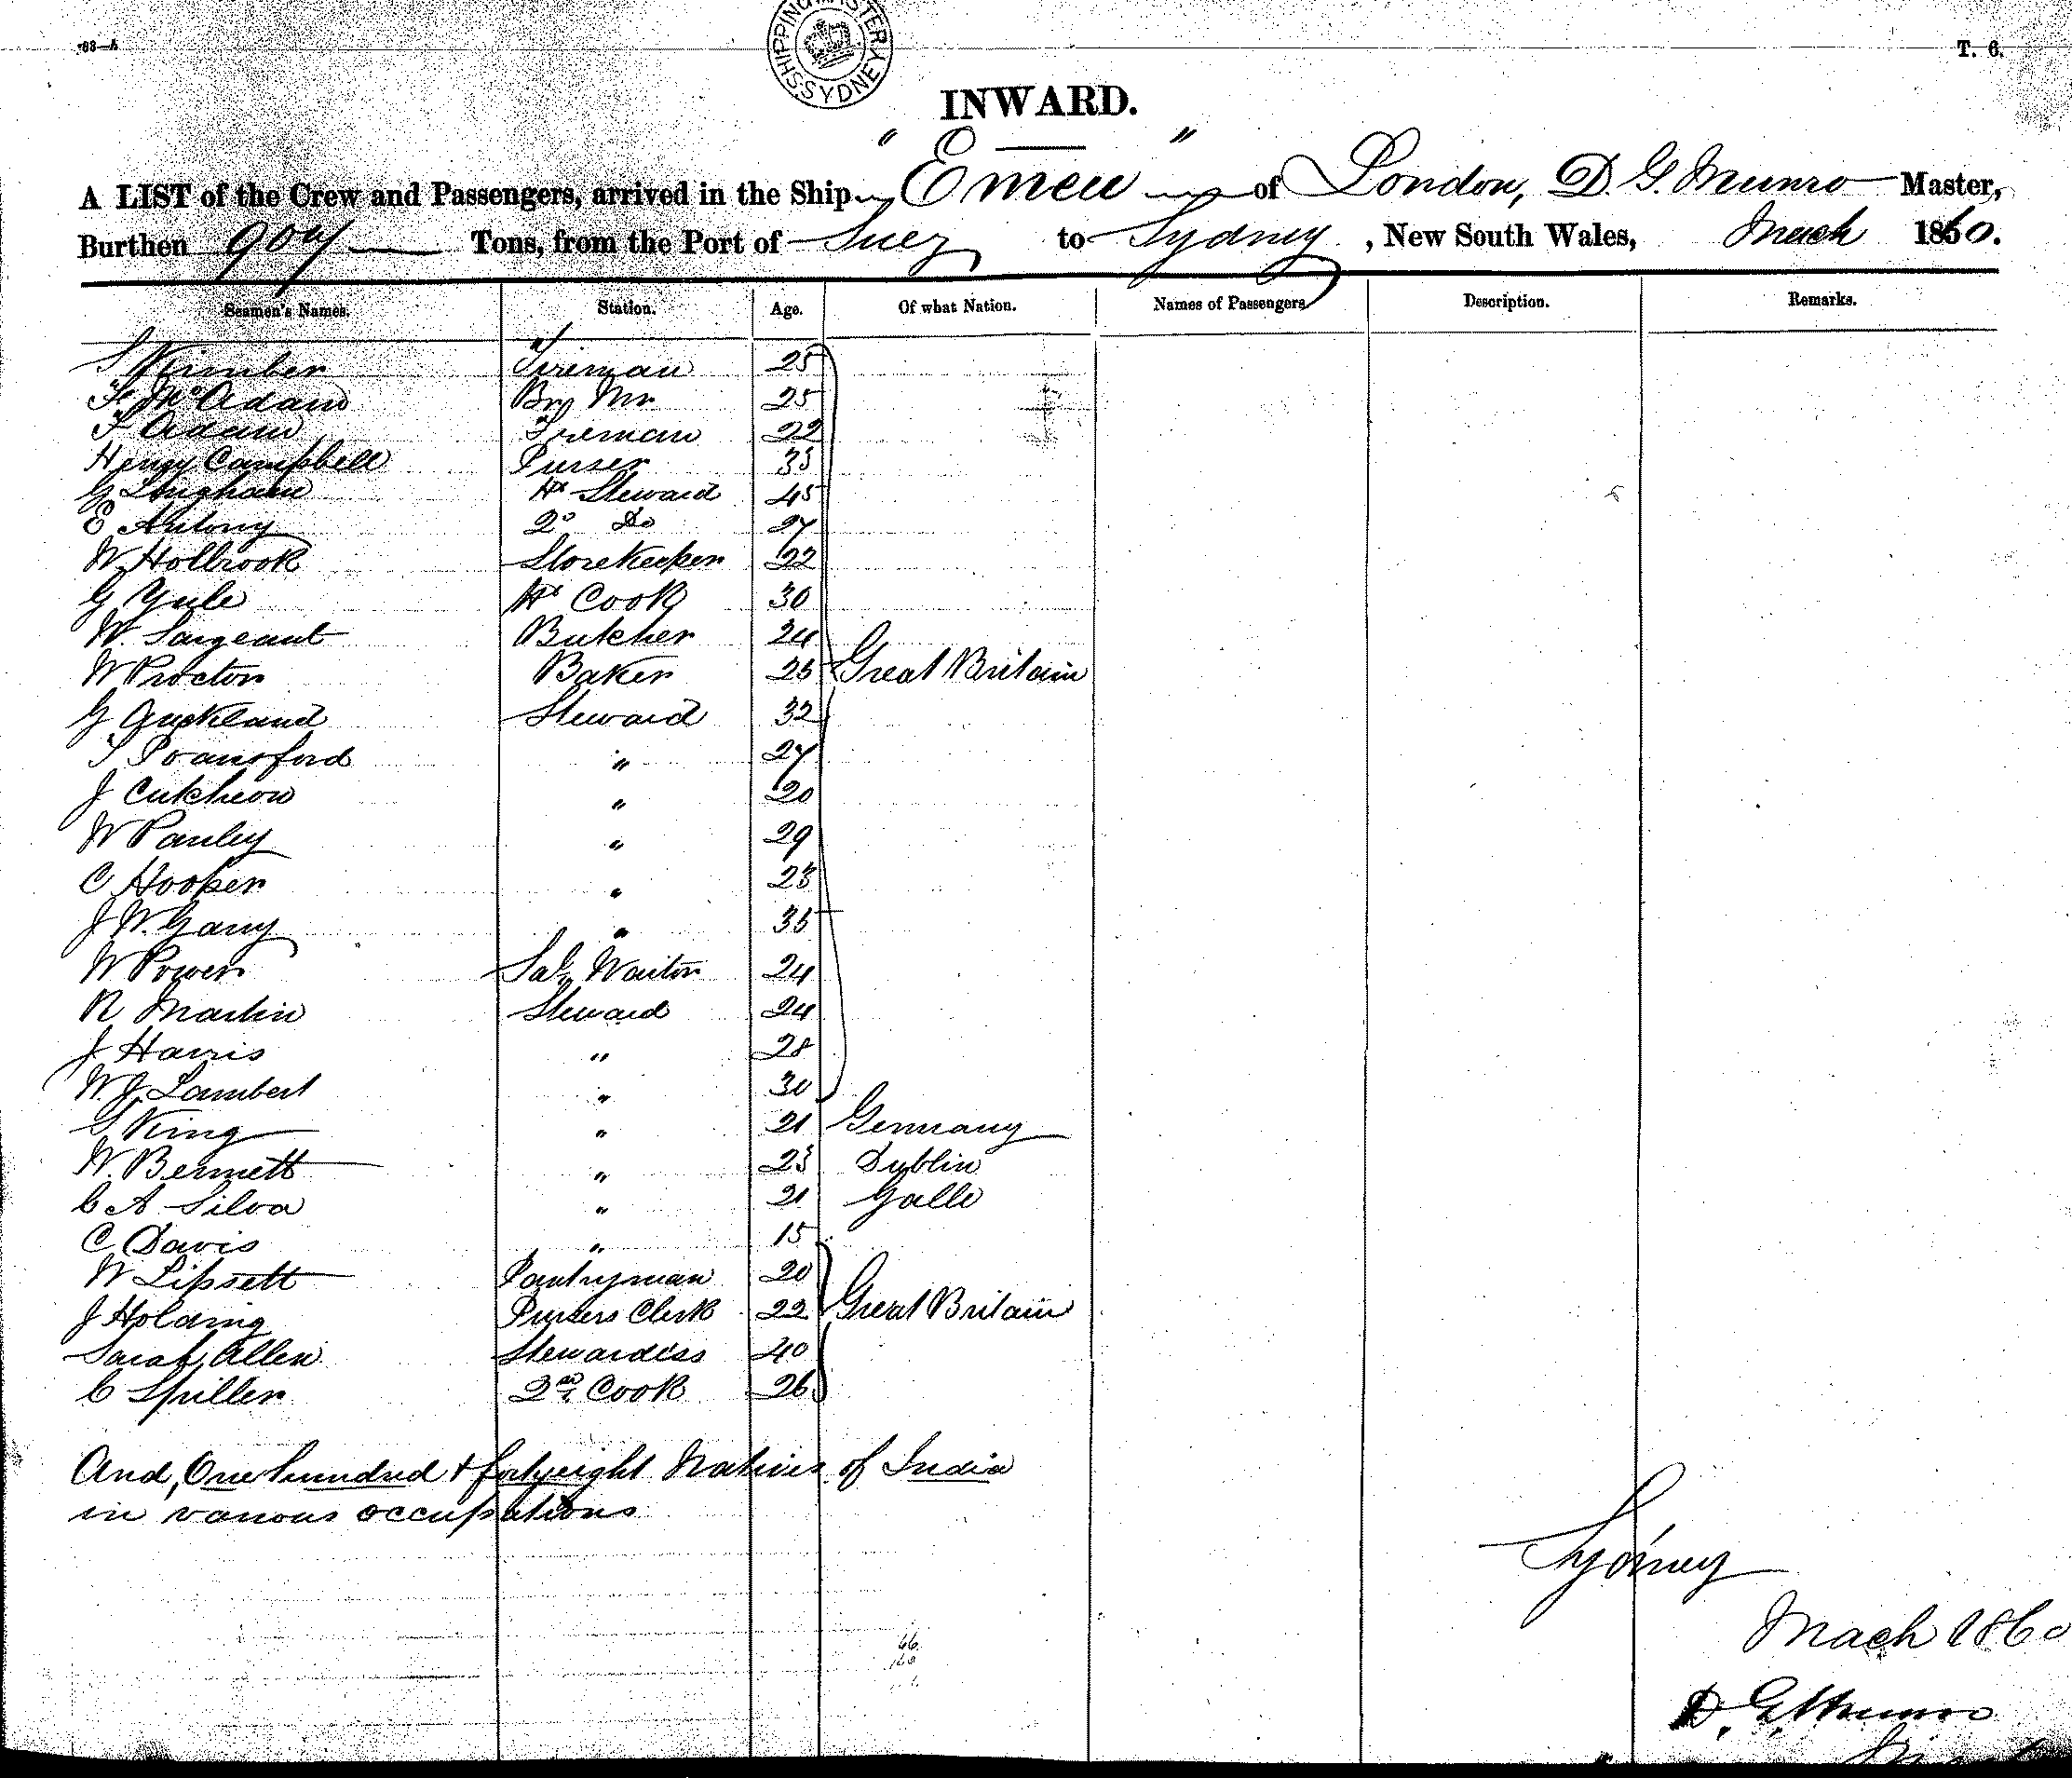 SHIPPING MASTER SYDNEY
63—A
T. 6.
INWARD.
A LIST of the Crew and Passengers, arrived in the Ship "Emeu" of London, D. G. Munro Master,
Burthen 904 Tons, from the Port of Suez to Sydney, New South Wales, March 1860.
Seamen's Names. Station. Age. Of what Nation. Names of Passengers Description. Remarks.
Kimber Fireman 25
McAdam 25
Adam Fireman 22
Henry Campbell Purser 33
G Lingham Hd Steward 45
E Antony 2d Do 27
W Holbrook Storekeeper 22
G Yule Hd Cook 30
W. Sargeant Butcher 24
W Procton Baker 26 Great Britain
G Auckland Steward 32
Poansford " 27
J Cutcheon " 20
W Pauley " 29
C Hooper " 23
J W. Gany " 36
W Power Saln Waiter 24
R Martin Steward 24
J Harris " 28
W. J. Lambert " 30
King " 21 Germany
W. Bennett " 23 Dublin
C A Silva " 21 Galle
C Davis " 15
W Lipsett Pantryman 20
J Holding Pursers Clerk 22 Great Britain
Sarah Allen Stewardess 40
C Spiller 2nd Cook 26
And, One hundred & forty eight Natives of India
in various occupations
Sydney
Mach 1860
D. G. Munro